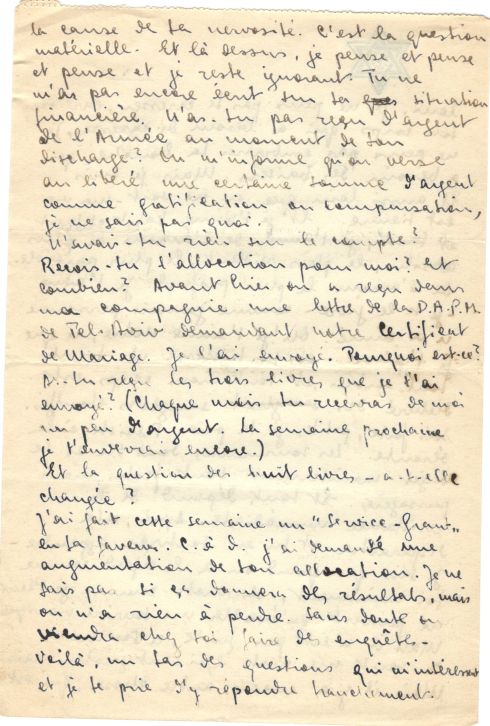 la cause de ta nervosité. C'est la question
matérielle. Et là dessus, je pense et pense
et pense et je reste ignorant. Tu ne
m'as pas encore écrit sur ta situation
financière. N'as-tu pas reçu d'argent
de l'Armée au moment de ton
discharge? On m'informe qu'on verse
au libéré une certaine somme d'argent
comme gratification ou compensation,
je ne sais pas quoi.
N'avais-tu rien sur le compte?
Reçois-tu l'allocation pour moi? et
combien? Avant hier on a reçu dans
ma compagnie une lettre de la D.A.P.M.
de Tel-Aviv demandant notre Certificat
de Mariage. Je l'ai envoyé. Pourquoi est-ce?
As-tu reçu les trois livres que je t'ai
envoyé? (Chaque mois tu recevras de moi
un peu d'argent. La semaine prochaine
je t'enverrai encore.)
Et la question des huit livres - a-t-elle
changée?
J'ai fait cette semaine un "Service-Grant"
en ta faveur. C. à d. j'ai demandé une
augmentation de ton allocation. Je ne
sais pas si ça donnera des résultats, mais
on n'a rien à perdre. Sans doute on
viendra chez toi faire des enquêtes-
Voilà, un tas des questions qui m'intéressent
et je te prie d'y répondre franchement.